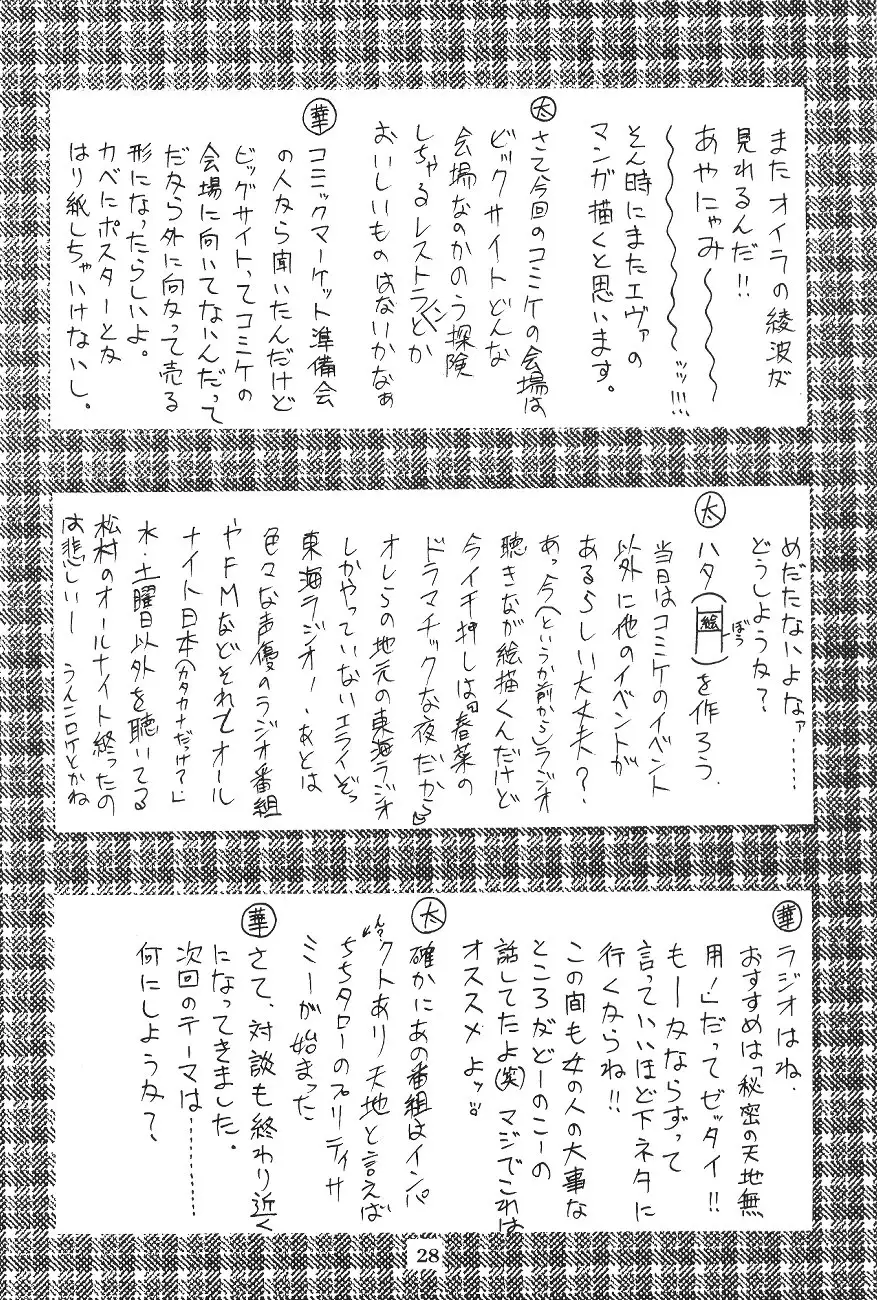 またオイラの綾波が
見れるんだ!!
あやにゃみ〜〜〜
〜〜〜〜〜ッッ!!!
そん時にまたエヴァの
マンガ描くと思います。
太 さて今回のコミケの会場は
ビックサイトどんな
会場なのかのう探険
しちゃるレストランとか
おいしいものはないかなぁ
華 コミックマーケット準備会
の人から聞いたんだけど
ビッグサイトってコミケの
会場に向いてないんだって
だから外に向かって売る
形になったらしいよ。
カベにポスターとか
はり紙しちゃいけないし。
めだたないよなァ……
どうしようか?
太 ハタ(絵 ぼう)を作ろう.
当日はコミケのイベント
以外に他のイベントが
あるらしい大丈夫?
あっ今(というか前から)ラジオ
聴きながら絵描くんだけど
今イチ押しは「春菜の
ドラマチックな夜だから」
オレらの地元の東海ラジオ
しかやっていないエライぞっ
東海ラジオ!.あとは
色々な声優のラジオ番組
やFMなどそれとオール
ナイト日本(カタカナだっけ?.)
水・土曜日以外を聴いてる
松村のオールナイト終ったの
は悲しいー うんこロケとかね
華 ラジオはね.
おすすめは「秘密の天地無
用!」だってゼッタイ!!
もーかならずって
言っていいほど下ネタに
行くからね!!
この間も女の人の大事な
ところがどーのこーの
話してたよ(笑)マジでこれは
オススメよッ
太 確かにあの番組はインパ
クトあり天地と言えば
ちちタローのプリティサ
ミーが始まった
んっ?
華 さて、対談も終わり近く
になってきました。
次回のテーマは………
何にしようか?
28